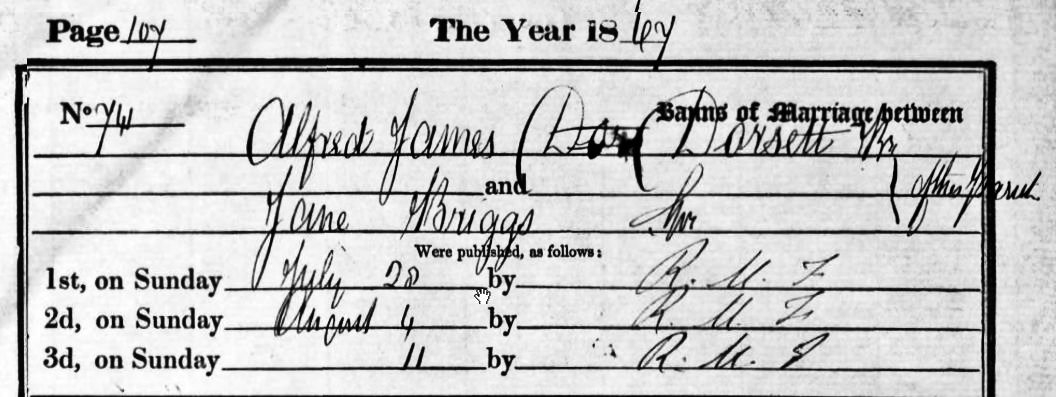 Page 107 The Year 1867
No. 74 Banns of Marriage between
Alfred James Dorsett Wr
and } of this Parish
Jane Briggs Spr
Were published, as follows:
1st, on Sunday July 28 by R. M. F
2d, on Sunday August 4 by R. M. F
3d, on Sunday 11 by R. M. F